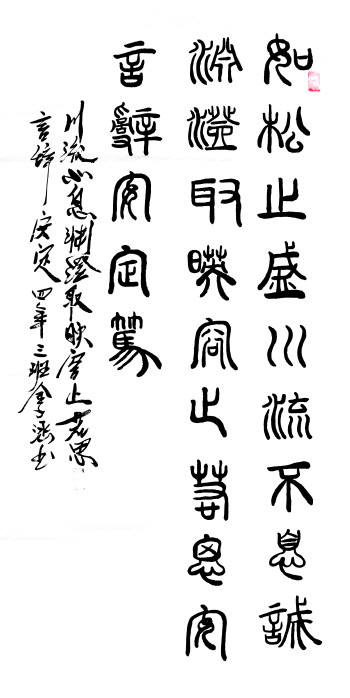 如松之盛川流不息誠
淵澄取暎容止若思安
言辭安定篤
川流不息渊澄取映容止若思
言辞安定 四年三班涵书